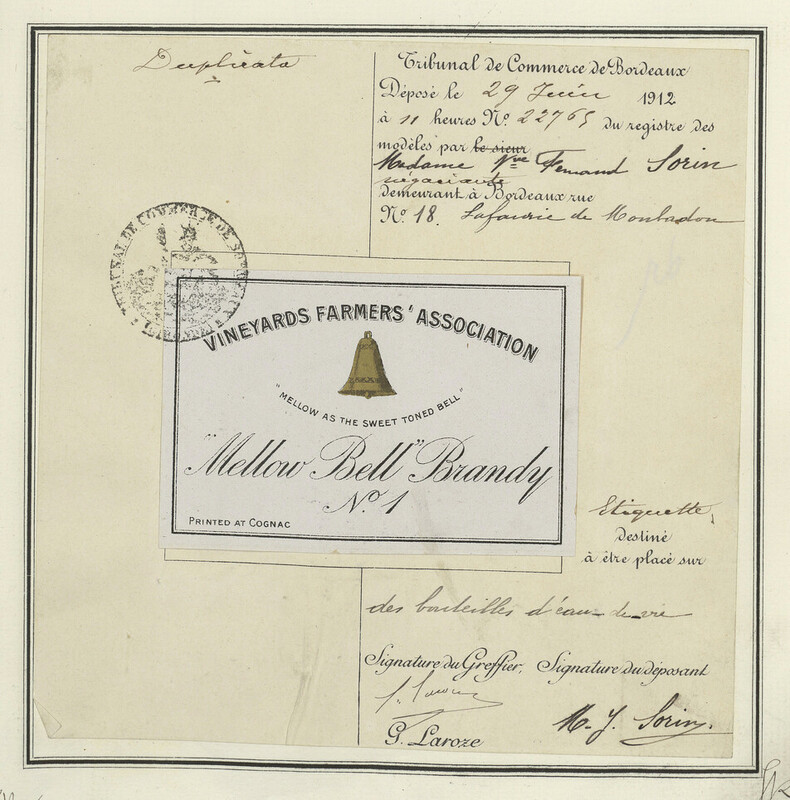 Duplicata
Tribunal de Commerce de Bordeaux
Déposé le 29 Juin 1912
à 11 heures No. 22765 du registre des
modèles par le sieur
Madame Vve Fernand Sorin
négociante
demeurant à Bordeaux rue
No. 18. Lafaurie de Monbadon
TRIBUNAL DE COMMERCE DE BORDEAUX
VINEYARDS FARMERS' ASSOCIATION
"MELLOW AS THE SWEET TONED BELL"
"Mellow Bell" Brandy
No. 1
PRINTED AT COGNAC
Etiquette,
destiné
à être placé sur
des bouteilles d'eau-de-vie
Signature du Greffier, Signature du déposant
G. Laroze
M. J. Sorin.